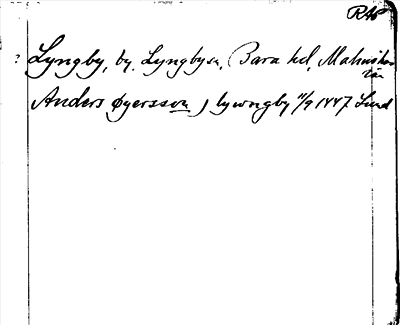 RAp
? Lyngby, by. Lyngby sn, Bara hd, Malmöhus
län
Anders Øyersson j lywngby 11/9 1447 Lund